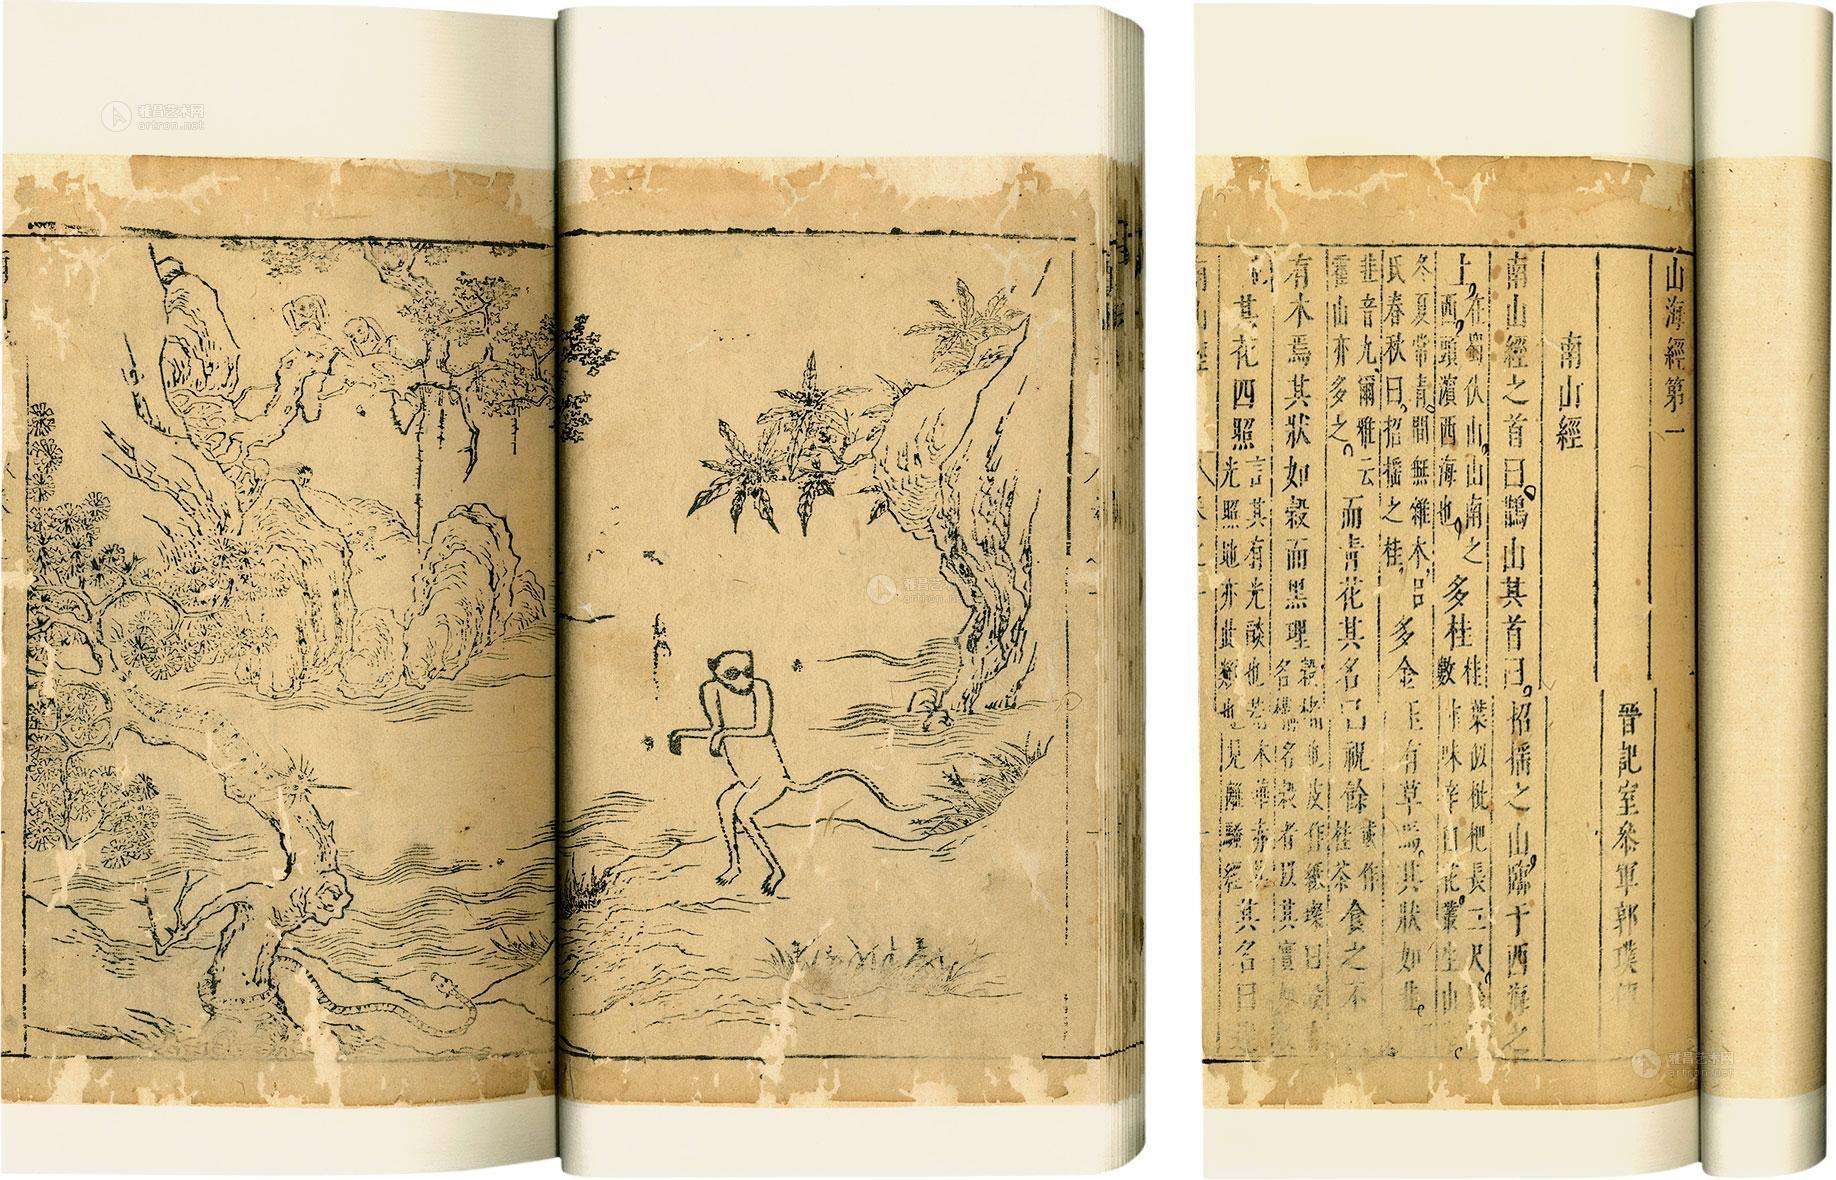 山海經第一
晉記室參軍郭璞
南山經
南山經之首曰鵲山其首曰招搖之山臨于西海之
上在蜀伏山山南之西頭濵西海也多桂桂葉似枇杷長二尺數寸味辛白花叢生山
冬夏常青間無雜木吕氏春秋曰招搖之桂多金玉有草焉其狀如韭
韭音九爾雅云霍山亦多之而青花其名曰祝餘或作桂荼食之不
有木焉其狀如榖而黑理榖楮也皮作紙璨曰榖名構名榖者以其實如
其花四照言其有光燄也若木華赤其光照地亦此類也見離騷經其名曰
雅昌艺术网
artron.net
雅昌艺术网
artron.net
雅昌艺术网
artron.net